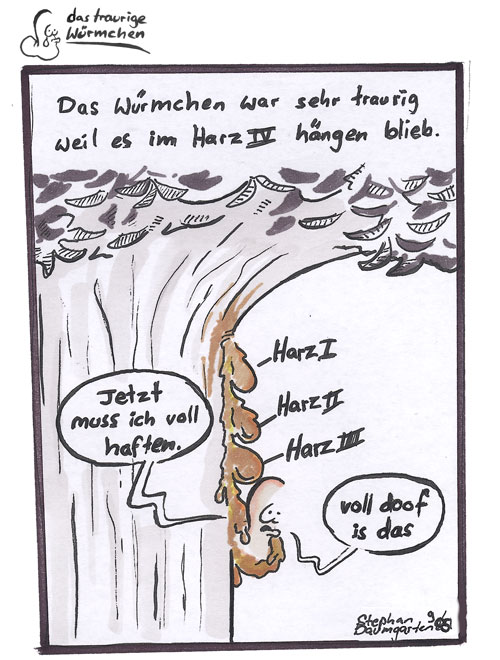 das traurige
Würmchen
Das Würmchen war sehr traurig
weil es im Harz IV hängen blieb.
Harz I
Harz II
Harz III
Jetzt
muss ich voll
haften.
voll doof
is das
Stephan
Baumgarten